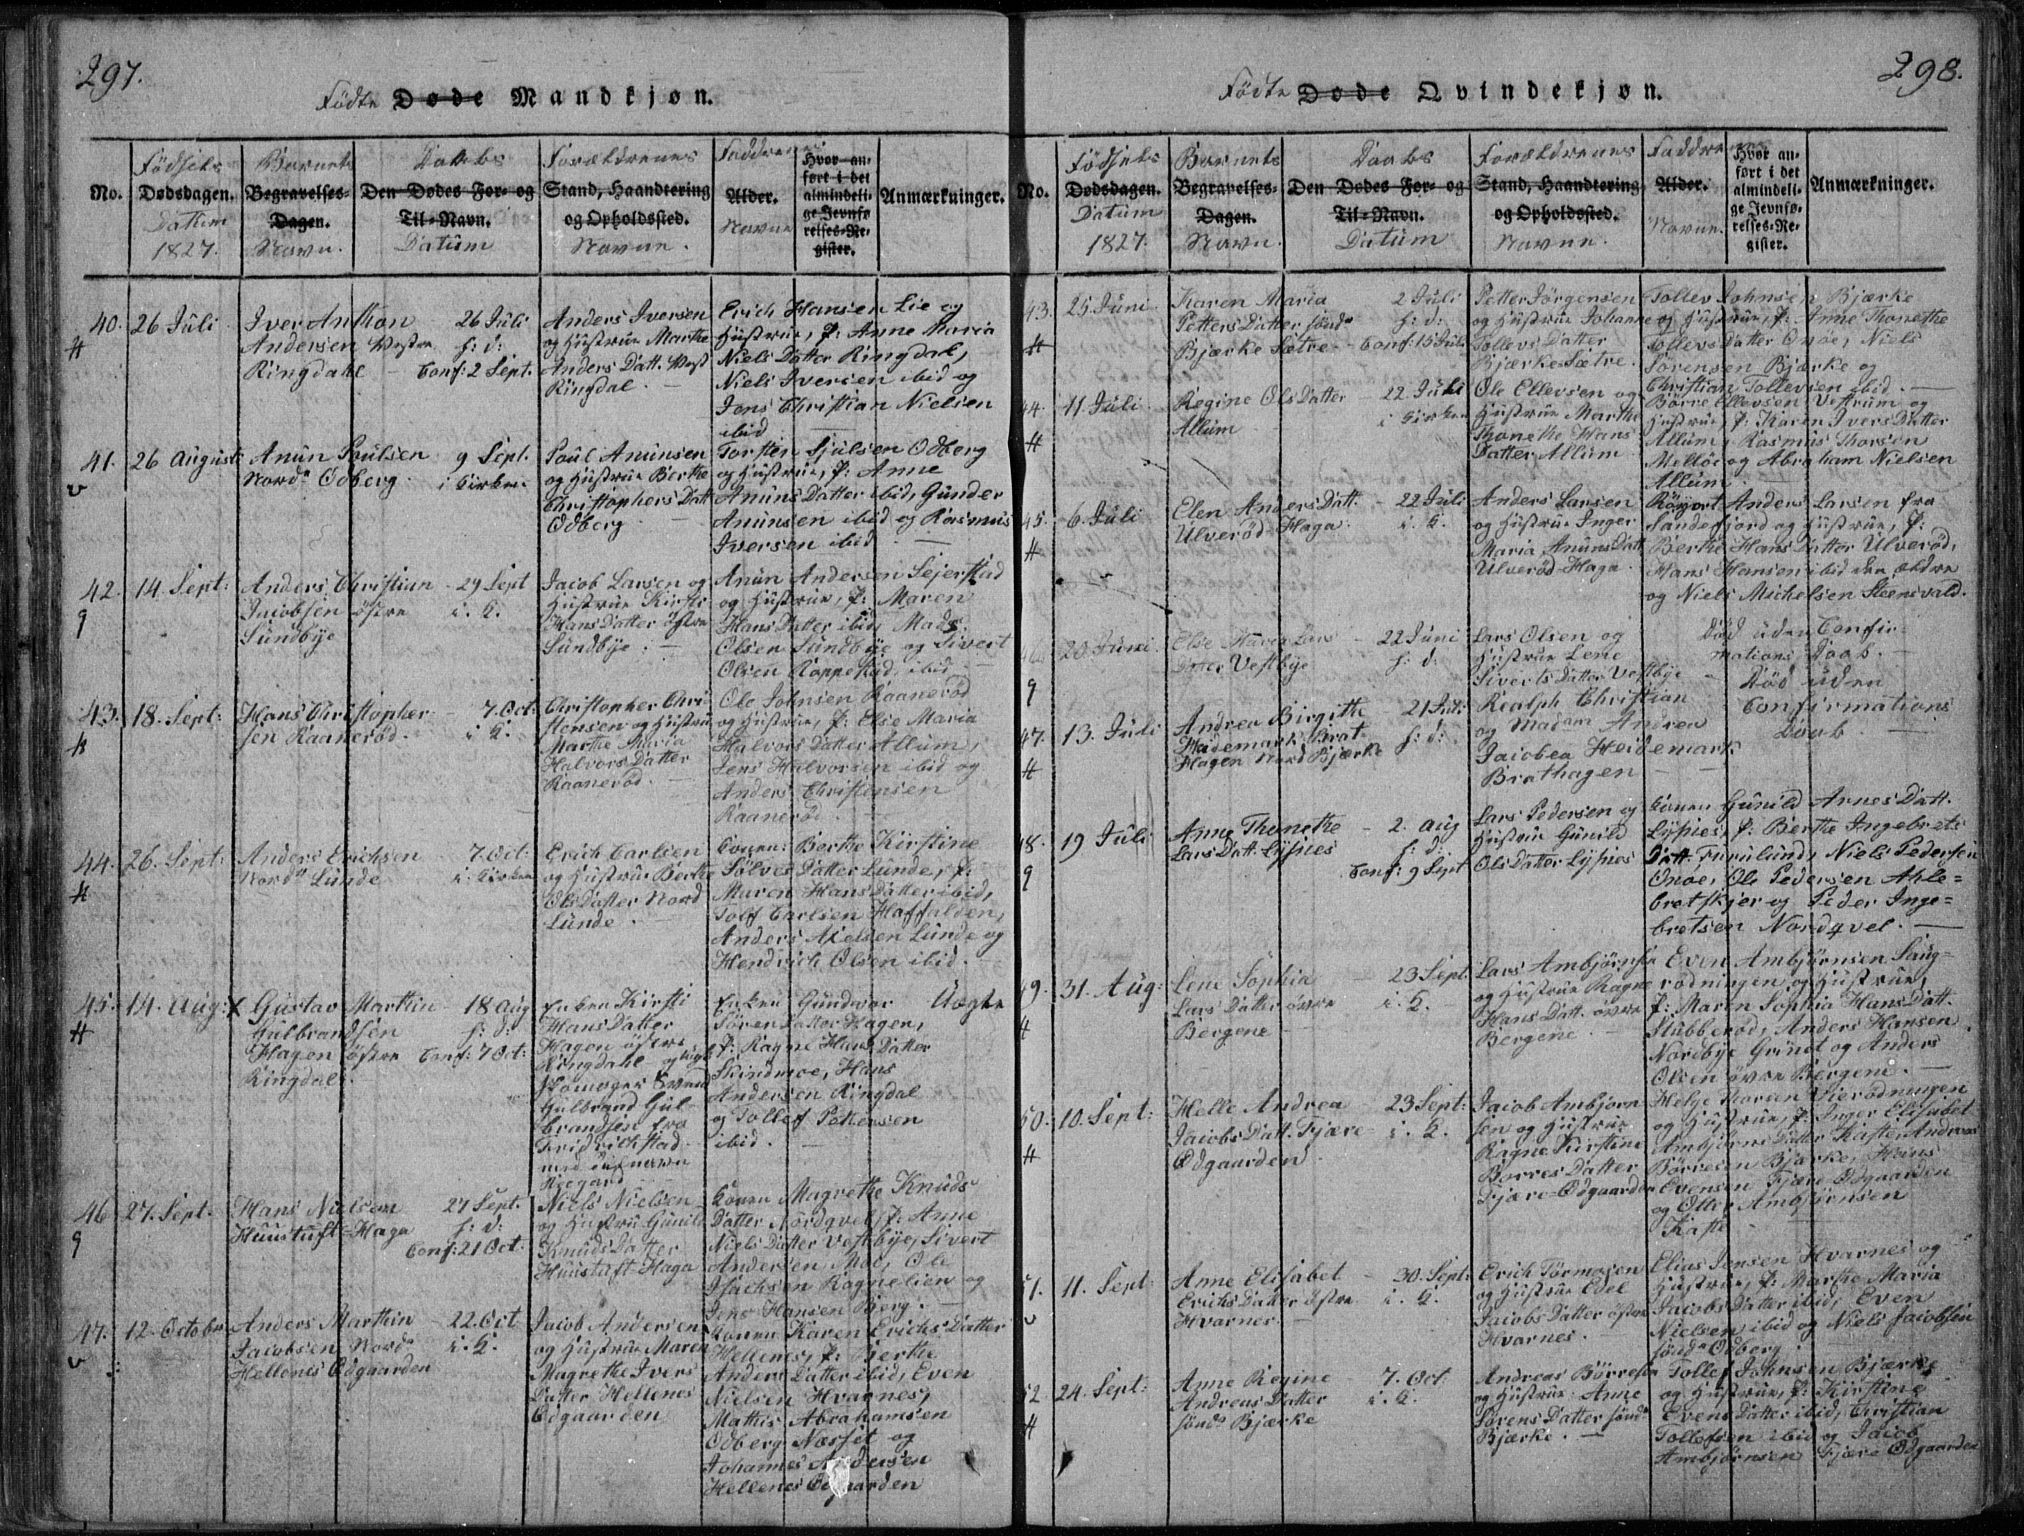 297.
Födte Døde Mandkjøn.
No.
Födsels
Dødsdagen.
Datum
1827.
Barnets
Begravelses-
Dagen.
Navn.
Daabs
Den Dødes For- og
Til-Navn.
Datum
Forældrenes
Stand, Haandtering
og Opholdssted.
Navne.
Faddrenes
Alder.
Navne
Hvor an-
ført i det
almindeli-
ge Jevnfø-
relses-Re-
gister.
Anmærkninger.
40.
26 Juli
Iver Anthon
Andersen Vestre
Ringdahl
26 Juli
h: d:
Conf: 2 Sept.
Anders Iversen
og Hustrue Marthe
Anders Datt. Vest
Ringdal.
Erich Hansen Lie og
Hustrue, P: Anne Maria
Niels Datter Ringdal,
Niels Iversen ibid og
Jens Christian Nielsen
ibid
41.
26 August
Anun Poulsen
Nord Odberg.
9 Sept.
i Kirken
Poul Anunsen
og Hustrue Berthe
Christophers Datt
Odberg
Torsten Sjulsen Odberg
og Hustrue, P: Anne
Anuns Datter ibid, Gunder
Anunsen ibid og Rasmus
Iversen ibid
42.
14. Sept:
Anders Christian
Jacobsen östre
Sundbye
29 Sept
i. K.
Jacob Larsen og
Hustrue Kirsti
Hans Datter östre
Sundbye.
Anun Andersen Sejerstad
og Hustrue, P: Maren
Hans Datter ibid, Mads
Olsen Sundbye og Sivert
Olsen Roppestad ibid
43.
18. Sept:
Hans Christopher-
sen Raanerød.
7. Oct:
i. K.
Christopher Chri-
stensen og Hustrue
Marthe Maria
Halvors Datter
Raanerød.
Ole Johnsen Raanerød
og Hustrue, P: Else Maria
Halvors Datter Allum,
Jens Halvorsen ibid og
Anders Christensen
Raanerød.
44.
26. Sept:
Anders Erichsen
Nord Lunde
7. Oct:
i. Kirken
Erich Carlsen
og Hustrue Berthe
Ols Datter Nord
Lunde.
Konen: Berthe Kirstine
Sölves Datter Lunde, P:
Maren Hans Datter ibid,
Tolf Carlsen Haffalden,
Anders Axelsen Lunde og
Hendrich Olsen ibid.
45.
14. Aug:
Gustav Marthin
Gulbrandsen
Hagen östre
Ringdal.
18 Aug
h: d:
Conf: 7 Oct:
Enken Kirsti
Hans Datter
Hagen östre
Ringdahl og
Skomager Svend
Gulbrand Gul-
brandsen fra
Fridrichstad
Enken Gundvor
Sören Datter Hagen,
P: Ragne Hans Datter
Skindmoe, Hans
Andersen Ringdal
og Tollef Pettersen
ibid.
Uægte
46
27. Sept.
Hans Nielsen
Huustuft-Haga
27 Sept.
h: d:
Conf: 21 Oct.
Niels Nielsen
og Hustrue Gunild
Knuds Datter
Huustuft Haga
Konen Magrethe Knuds
Datter Nordqvel, P: Anne
Niels Datter Vestbye, Sivert
Andersen Moe, Ole
Isachsen Ragnelien og
Jens Hansen Bjerg.
47.
12. October
Anders Marthin
Jacobsen Nord
Hellenes Ødgaarden
22. Oct
i. K.
Jacob Andersen
og Hustrue Maren
Magrethe Ivers
Datter Hellenes
Ødgaarden
Konen Karen Erichs Datter
Hellenes, P: Berthe
Anders Datter ibid, Even
Nielsen Hvarnes,
Mathis Abrahamsen
Odberg Næsset og
Johannes Andersen
Hellenes Ødgaarden
298.
Födte Døde Qvindekjøn.
No.
Födsels
Dødsdagen.
Datum
1827.
Barnets
Begravelses-
Dagen.
Navn.
Daabs
Den Dødes For- og
Til-Navn.
Datum
Forældrenes
Stand, Haandtering
og Opholdssted.
Navne.
Faddrenes
Alder.
Navne.
Hvor an-
ført i det
almindeli-
ge Jevnfø-
relses-Re-
gister.
Anmærkninger.
43.
25 Juni
Karen Maria
Petters Datter sönd
Bjærke Sætre
2 Juli
h: d:
Conf: 15 Juli
Petter Jörgensen
og Hustrue Johanne
Tollevs Datter
Bjærke-Sætre.
Tollev Johnsen Bjærke
og Hustrue, P: Anne Thonethe
Tollevs Datter Onöe, Niels
Sörensen Bjærke og
Christian Tollevsen ibid.
44.
11. Juli
Regine Ols Datter
Allum
22 Juli
i Kirken
Ole Ellevsen og
Hustrue Marthe
Thonethe Hans
Datter Allum
Börre Ellevsen Vestrum og
Hustrue, P: Karen Ivers Datter
Allum, Rasmus Thorsen
Melløe og Abraham Nielsen
Allum.
45.
6. Juli
Elen Anders Datt.
Ulverød-Haga
22 Juli
i. K.
Anders Larsen
og Hustrue Inger
Maria Anuns Datt
Ulverød-Haga
Anders Larsen fra
Sandefjord og Hustrue, P:
Berthe Hans Datter Ulverød,
Hans Hansen ibid den ældre
og Niels Michelsen Steensvald.
46.
20. Juni
Else Maria Lars
Datter Vestbye
22 Juni
h: d:
Lars Olsen og
Hustrue Lene
Siverts Datter Vestbye
Död uden Confir-
mations Daab.
47.
13. Juli
Andrea Birgithe
Hademark Brat-
Hagen Nord Bjærke
21 Juli
h: d:
Realph Christian
og Madam Andrea
Jacobea Heidemark
Brathagen
Död uden
Confirmations
Daab
48.
19 Juli
Anne Thonethe
Lars Datt. Lysnes
2. Aug
h: d:
Conf: 9 Sept
Lars Pedersen og
Hustrue Gunild
Ols Datter Lysnes
Konen Gunild Arnes Datt.
Lysnes, P: Berthe Ingebrets
Datt. Furulund, Niels Pedersen
Onøe, Ole Pedersen Ahle-
bretskjer og Peder Inge-
bretsen Nordqvel.
49.
31. Aug:
Lene Sophia
Lars Datter övre
Bergene
23 Sept.
i. K.
Lars Ambjörnsen
og Hustrue Ragne
Hans Datt. övre
Bergene
Even Ambjörnsen Saug-
rödningen og Hustrue,
P: Maren Sophia Hans Datt.
Stubberød, Anders Hansen
Nordbye Grinet og Anders
Olsen övre Bergene.
50.
10. Sept:
Helle Andrea
Jacobs Datt. Fjære
Ødgaarden
23 Sept:
i. K.
Jacob Ambjörn-
sen og Hustrue
Ragne Kirstine
Börres Datter
Fjære-Ødgaarden
Helje Larsen Lierødningen
og Hustrue, P: Inger Elisabet
Ambjörns Datter Kaste, Andreas
Börresen Bjærke, Hans
Evensen Fjære Ødgaarden
og Otto Ambjörnsen
Kaste
51.
11. Sept:
Anne Elisabet
Erichs Datter östre
Hvarnes
30. Sept:
i. K.
Erich Tormosen
og Hustrue Edel
Jacobs Datter östre
Hvarnes.
Elias Jensen Hvarnes og
Hustrue, P: Marthe Maria
Jacobs Datter ibid, Even
Nielsen ibid og Niels Jacobsen
sönd Odberg
52.
24. Sept:
Anne Regine
Andreas Datter
sönd Bjærke
7. Oct
i. K.
Andreas Börresen
og Hustrue Anne
Sörens Datter sönd
Bjærke.
Tollef Johnsen Bjærke
og Hustrue, P: Kirstine
Evens Datter ibid, Christian
Tollefsen ibid og Jacob
Ambjörnsen Fjære Ødgaarden